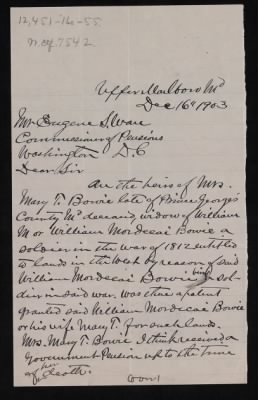 12,451-160-55.
W.C. 7542
Upper Marlboro Md
Dec 16th 1903
Mr Eugene F. Ware
Commissioner of Pensions
Washington D.C
Dear Sir
Are the heirs of Mrs.
Mary T. Bowie late of Prince George's
County Md deceased, widow of William
M or William Mordecai Bowie a
soldier in the war of 1812 entitled
to lands in the West by reason of said
William Mordecai Bowie being sol-
dier in said war. Was there a patent
granted said William Mordecai Bowie
or his wife Mary T. for such lands.
Mrs. Mary T. Bowie I think received a
Government Pension up to the time
of her death.
(over)